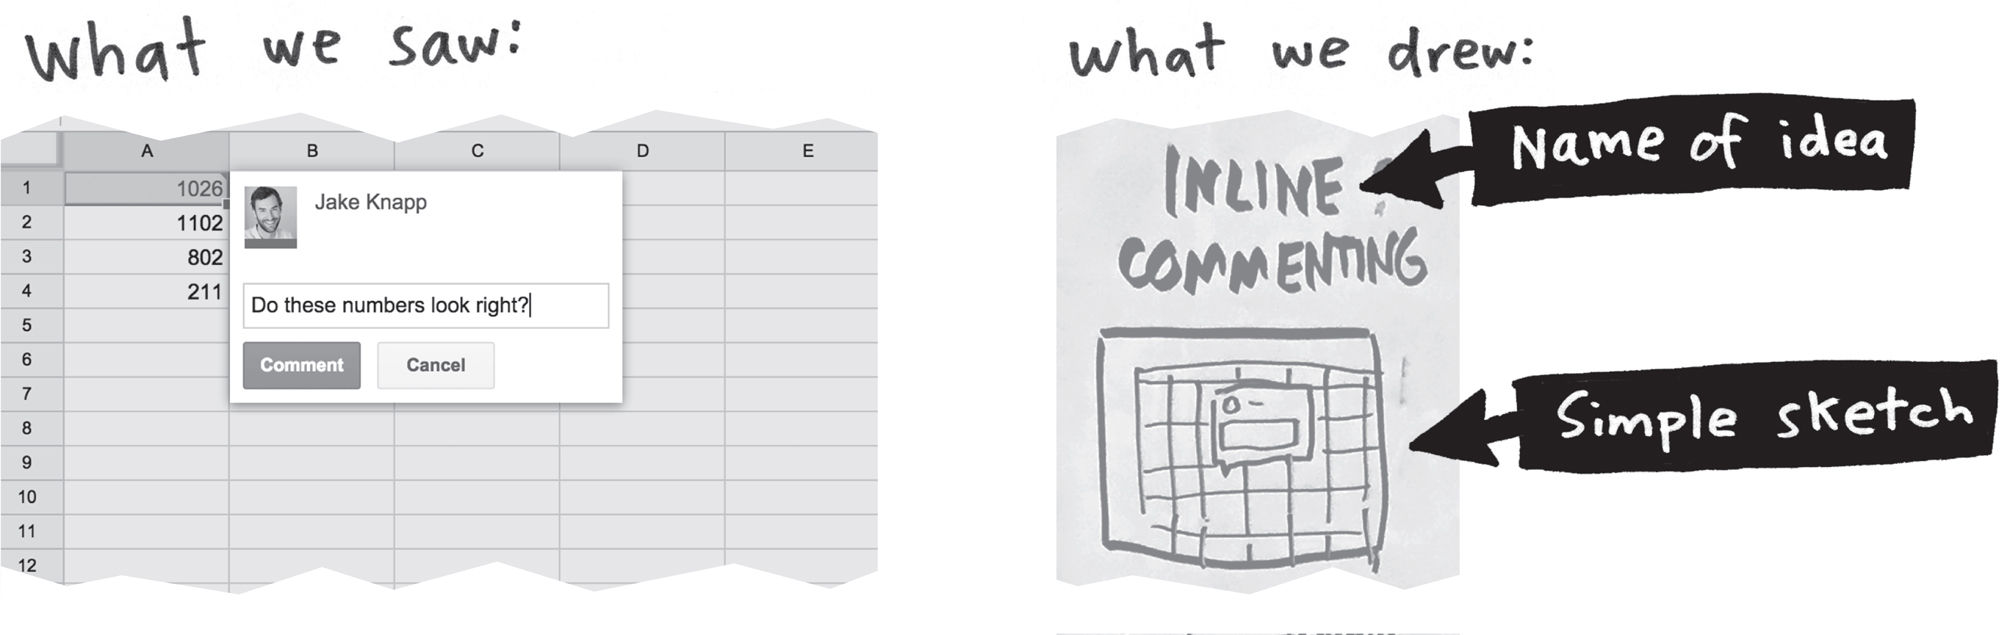 What we saw:
A B C D E
1 1026
2 1102
3 802
4 211
5
6
7
8
9
10
11
12
Jake Knapp
Do these numbers look right?
Comment Cancel
What we drew:
Name of idea
INLINE
COMMENTING
Simple sketch